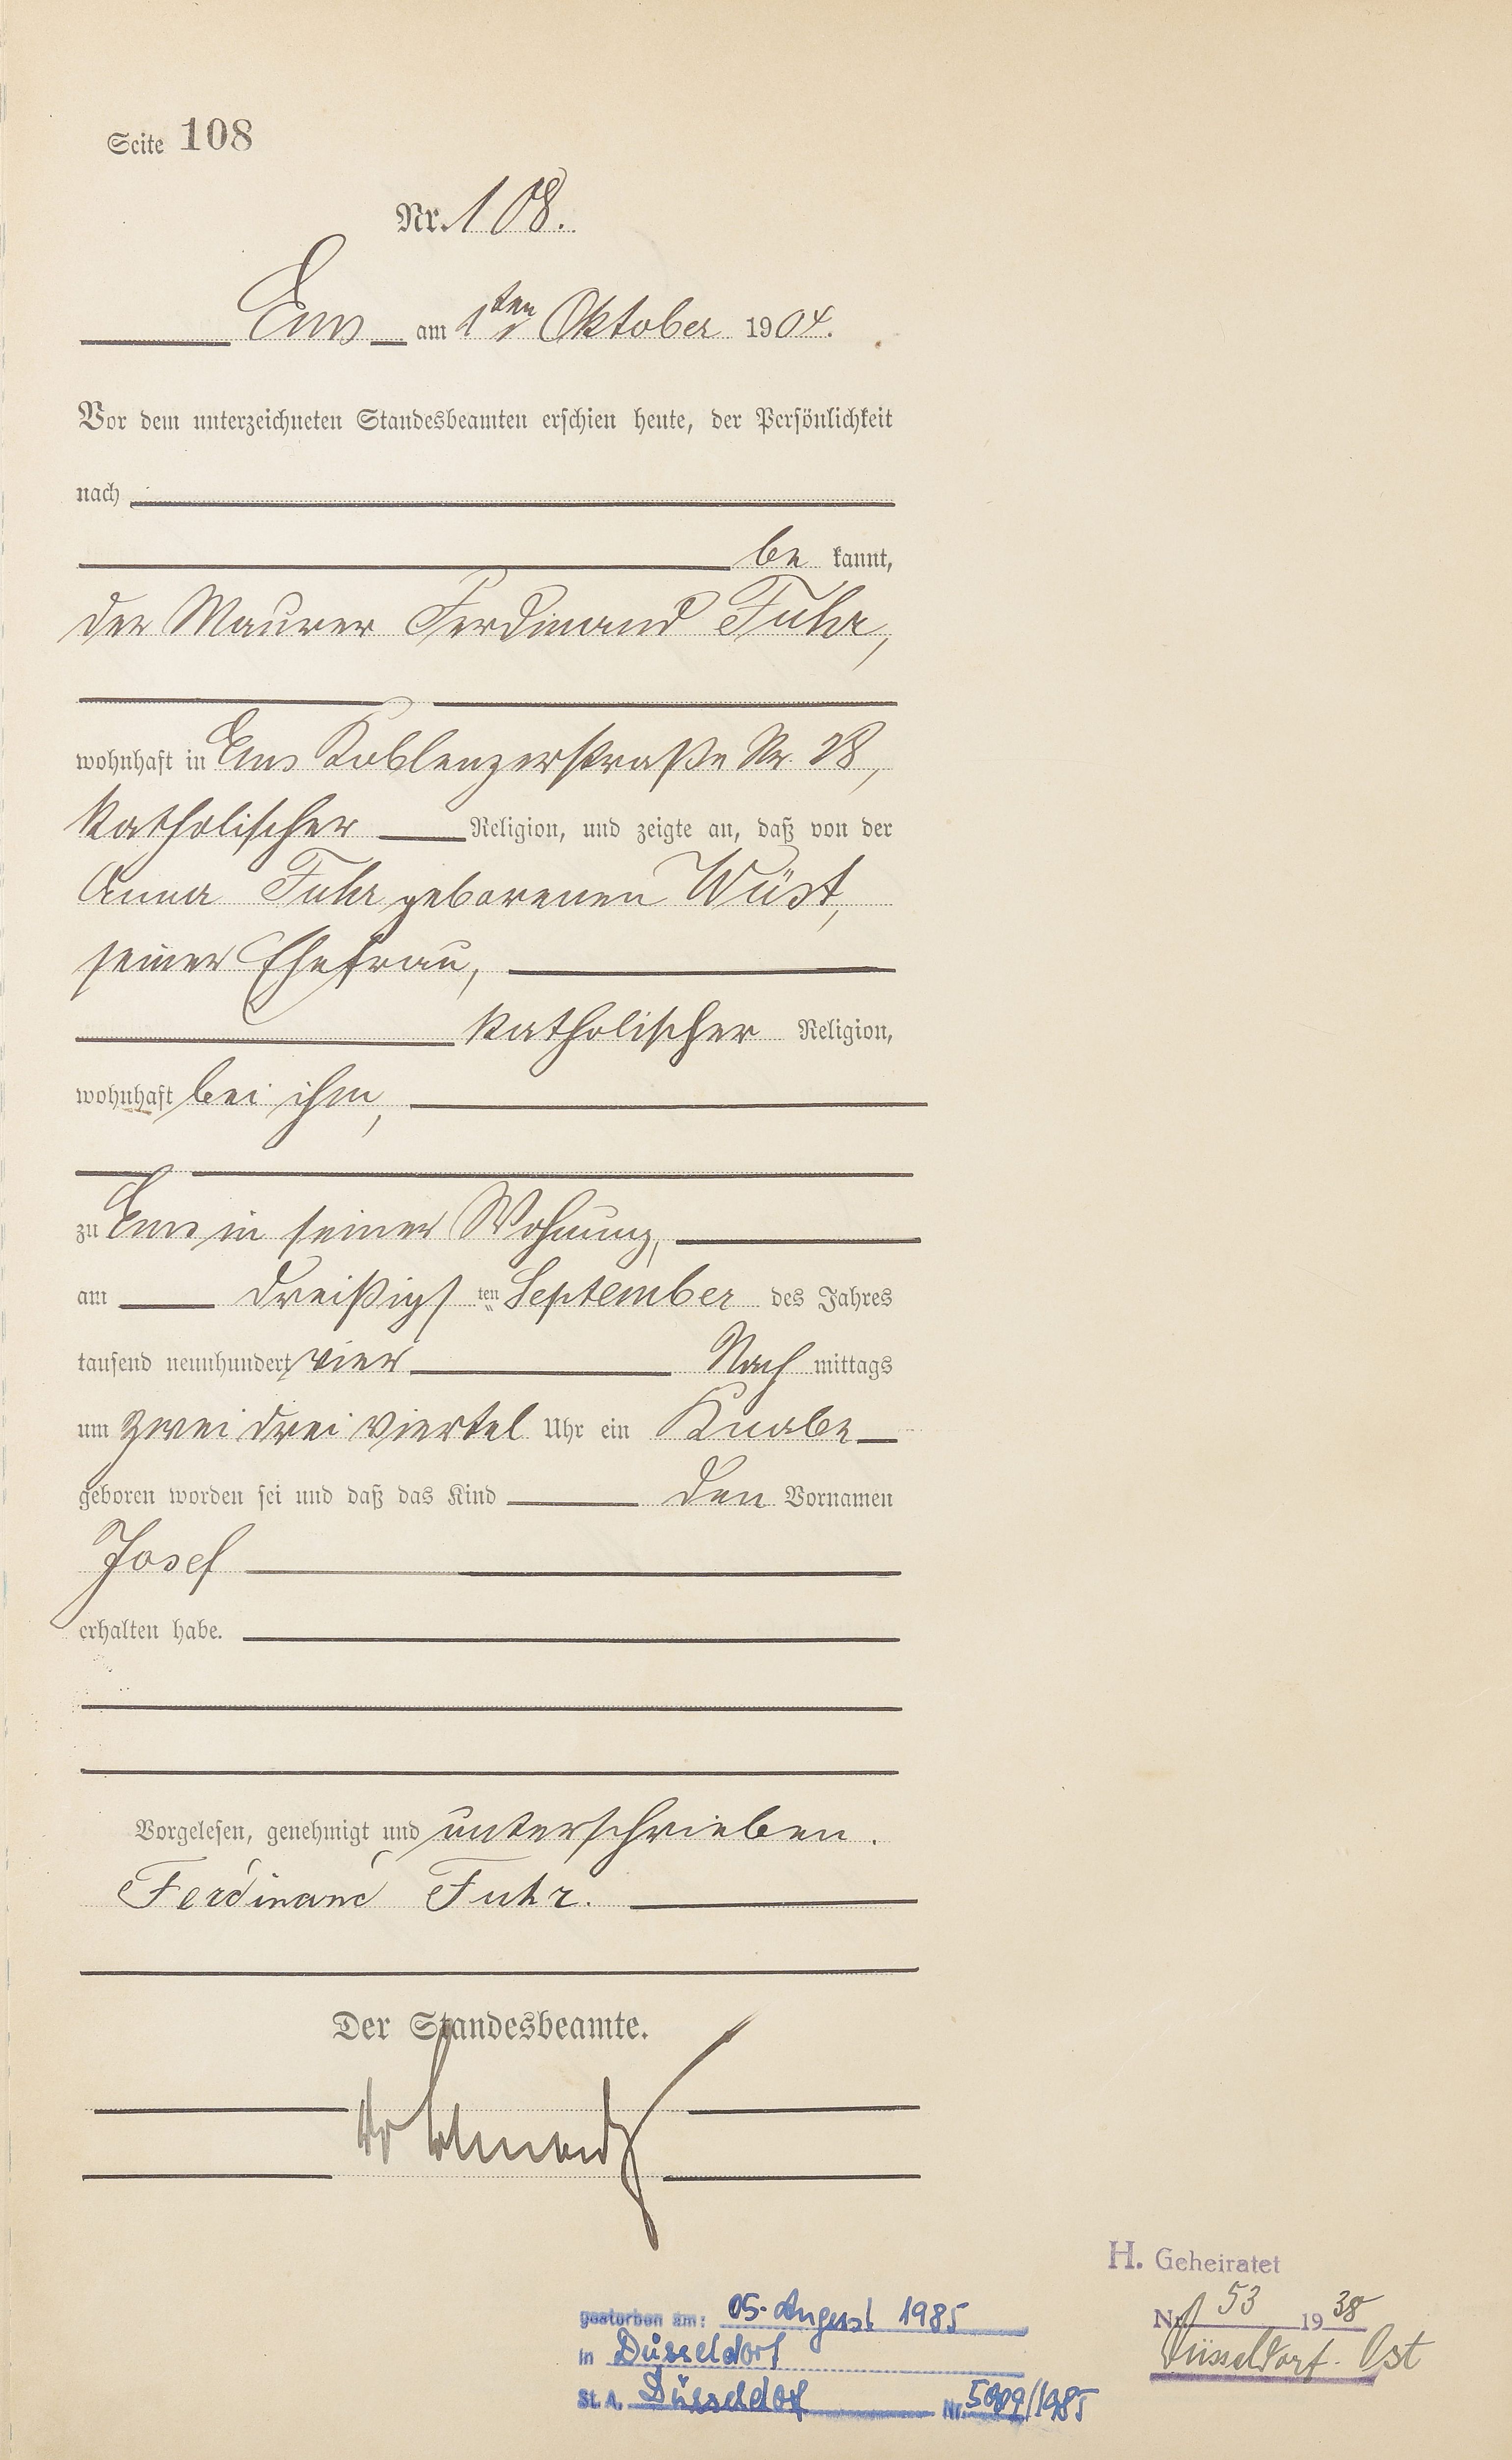 Seite 108
Nr. 108.
Ems am 1ten Oktober 1904.
Vor dem unterzeichneten Standesbeamten erschien heute, der Persönlichkeit
nach
be kannt,
der Maurer Ferdinand Fuhr,
wohnhaft in Ems Koblenzerstraße Nr. 28,
katholischer Religion, und zeigte an, daß von der
Anna Fuhr geborenen Wüst,
seiner Ehefrau,
katholischer Religion,
wohnhaft bei ihm,
zu Ems in seiner Wohnung,
am dreißigs ten September des Jahres
tausend neunhundert vier Nach mittags
um zwei drei viertel Uhr ein Knabe
geboren worden sei und daß das Kind den Vornamen
Josef
erhalten habe.
Vorgelesen, genehmigt und unterschrieben.
Ferdinand Fuhr.
Der Standesbeamte.
H. Geheiratet
Nr. 53 1938
Düsseldorf-Ost
gestorben am: 05. August 1985
in Düsseldorf
St. A. Düsseldorf Nr. /1985